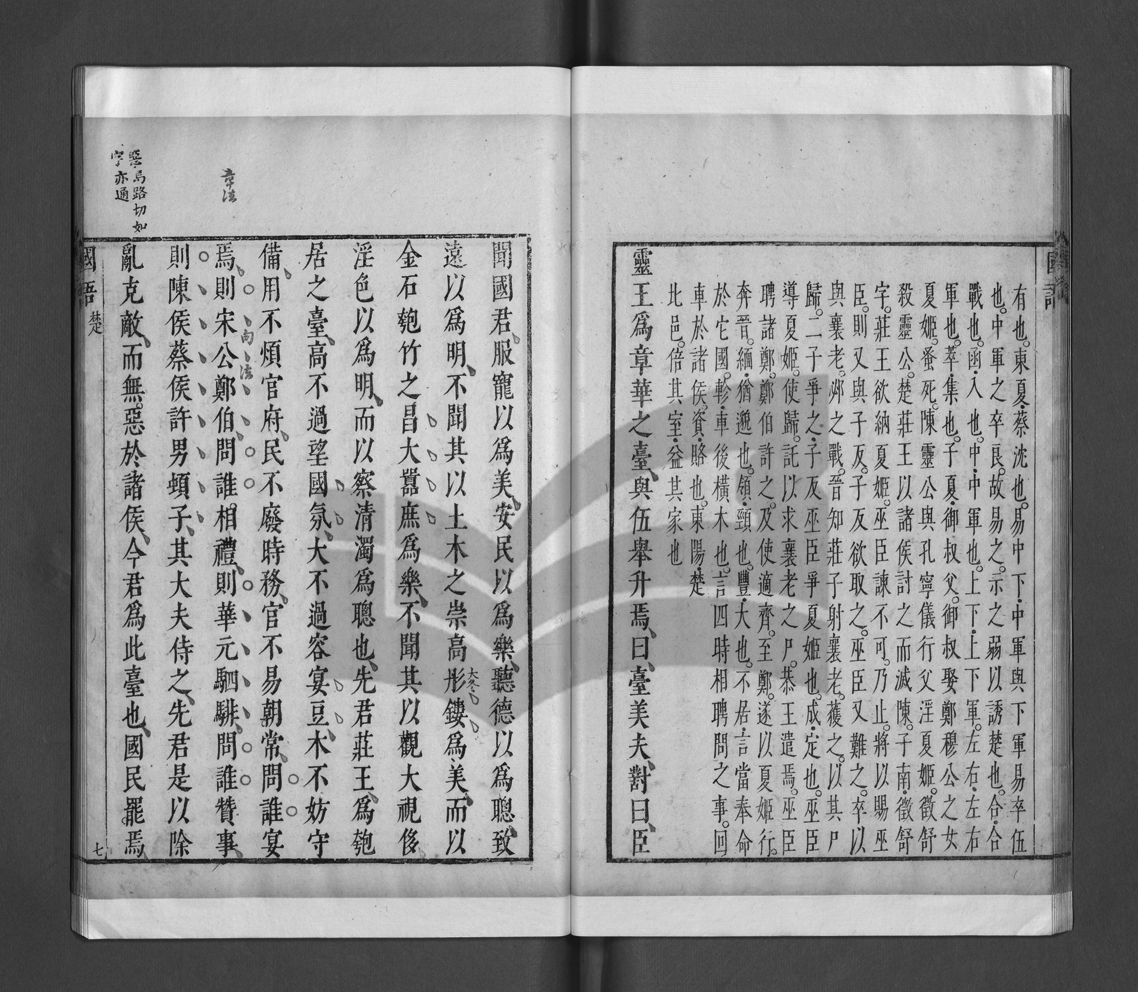 有也東夏蔡沈也易中下中軍與下軍易卒伍
也中軍之卒良故易之示之弱以誘楚也合合
戰也函入也中中軍也上下上下軍左右左右
軍也萃集也子夏御叔父御叔娶鄭穆公之女
夏姬蚤死陳靈公與孔寧儀行父淫夏姬徵舒
殺靈公楚莊王以諸侯討之而滅陳子南徵舒
字莊王欲納夏姬巫臣諫不可乃止將以賜巫
臣則又與子反子反欲取之巫臣又難之卒以
與襄老邲之戰晉知莊子射襄老獲之以其尸
歸二子爭之子反巫臣爭夏姬也成定也巫臣
導夏姬使歸託以求襄老之尸恭王遣焉巫臣
聘諸鄭鄭伯許之及使適齊至鄭遂以夏姬行
奔晉緬猶邈也領頸也豐大也不居言當奉命
於它國軫車後橫木也言四時相聘問之事回
車於諸侯資賂也東陽楚
北邑倍其室益其家也
靈王爲章華之臺與伍舉升焉曰臺美夫對曰臣
聞國君服寵以爲美安民以爲樂聽德以爲聰致
遠以爲明不聞其以土木之崇高彤鏤爲美而以
大冬
金石匏竹之昌大囂庶爲樂不聞其以觀大視侈
淫色以爲明而以察清濁爲聰也先君莊王爲匏
居之臺高不過望國氛大不過容宴豆木不妨守
備用不煩官府民不廢時務官不易朝常問誰宴
章法
焉則宋公鄭伯問誰相禮則華元駟騑問誰贊事
句法
則陳侯蔡侯許男頓子其大夫侍之先君是以除
亂克敵而無惡於諸侯今君爲此臺也國民罷焉
惡烏路切如
字亦通
國語 楚 七